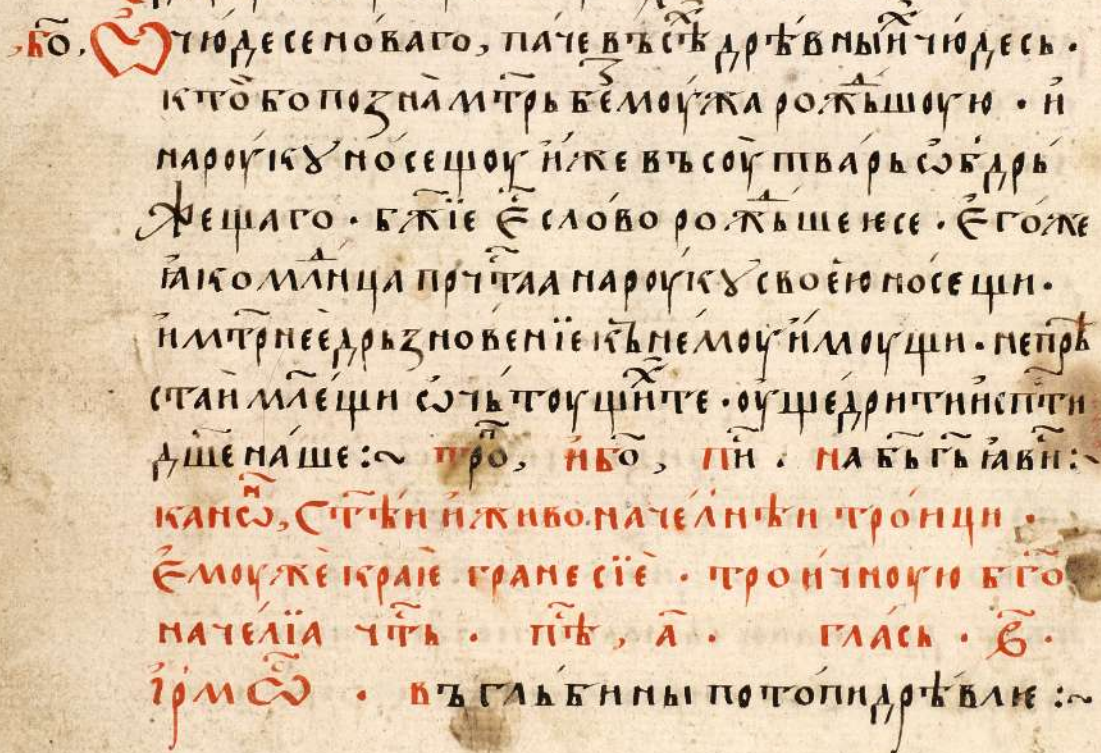 ,бо҃, Ѽ чю́десе но́ваго, паче въсѣ́х дрѣ́вны́и҆х чю́десь ·
кто̀ бо позна̀ мт҃рь без̾ моу́жа рож́дьшоую · и҆
на роу́кꙋ но́сещоу и҆́же въсоу̀ тва́рь ѡбдрь́
жещаго · бж҃їе є҆с̑ сло́во рож́дьшеѥсе · є҆го́же
ꙗ҆ко мл҃дни́ца прч҃таа на роу́кꙋ свое́ю носещи ·
и҆ мт҃рнеѐ дрьзнове́нїе къ не́моу и҆́моущи · не прѣ
стаѝ мл҃е́щи ѡ чь́тоущи́х те · оу҆ще́дрити и҆ сп҃сти
дш҃е на́ше :~ прⷪ҇ро, и҆ бо҃, пⷭ҇н . на бь҃ гь҃ ꙗ҆ви :~
канѡⷩ҇, Ст҃ѣ́и и҆ живона че́лнѣи тро́ици ·
Є҆моу́же краѥ̀ гране сїѐ · трои́чноую бг҃о
наче́лїа чть҃ · пѣⷭ҇, а҃ · гла́сь · в҃ ·
і҆рмѡⷭ҇ · въ гль́бины пото́пи дрѣ́влѥ :~